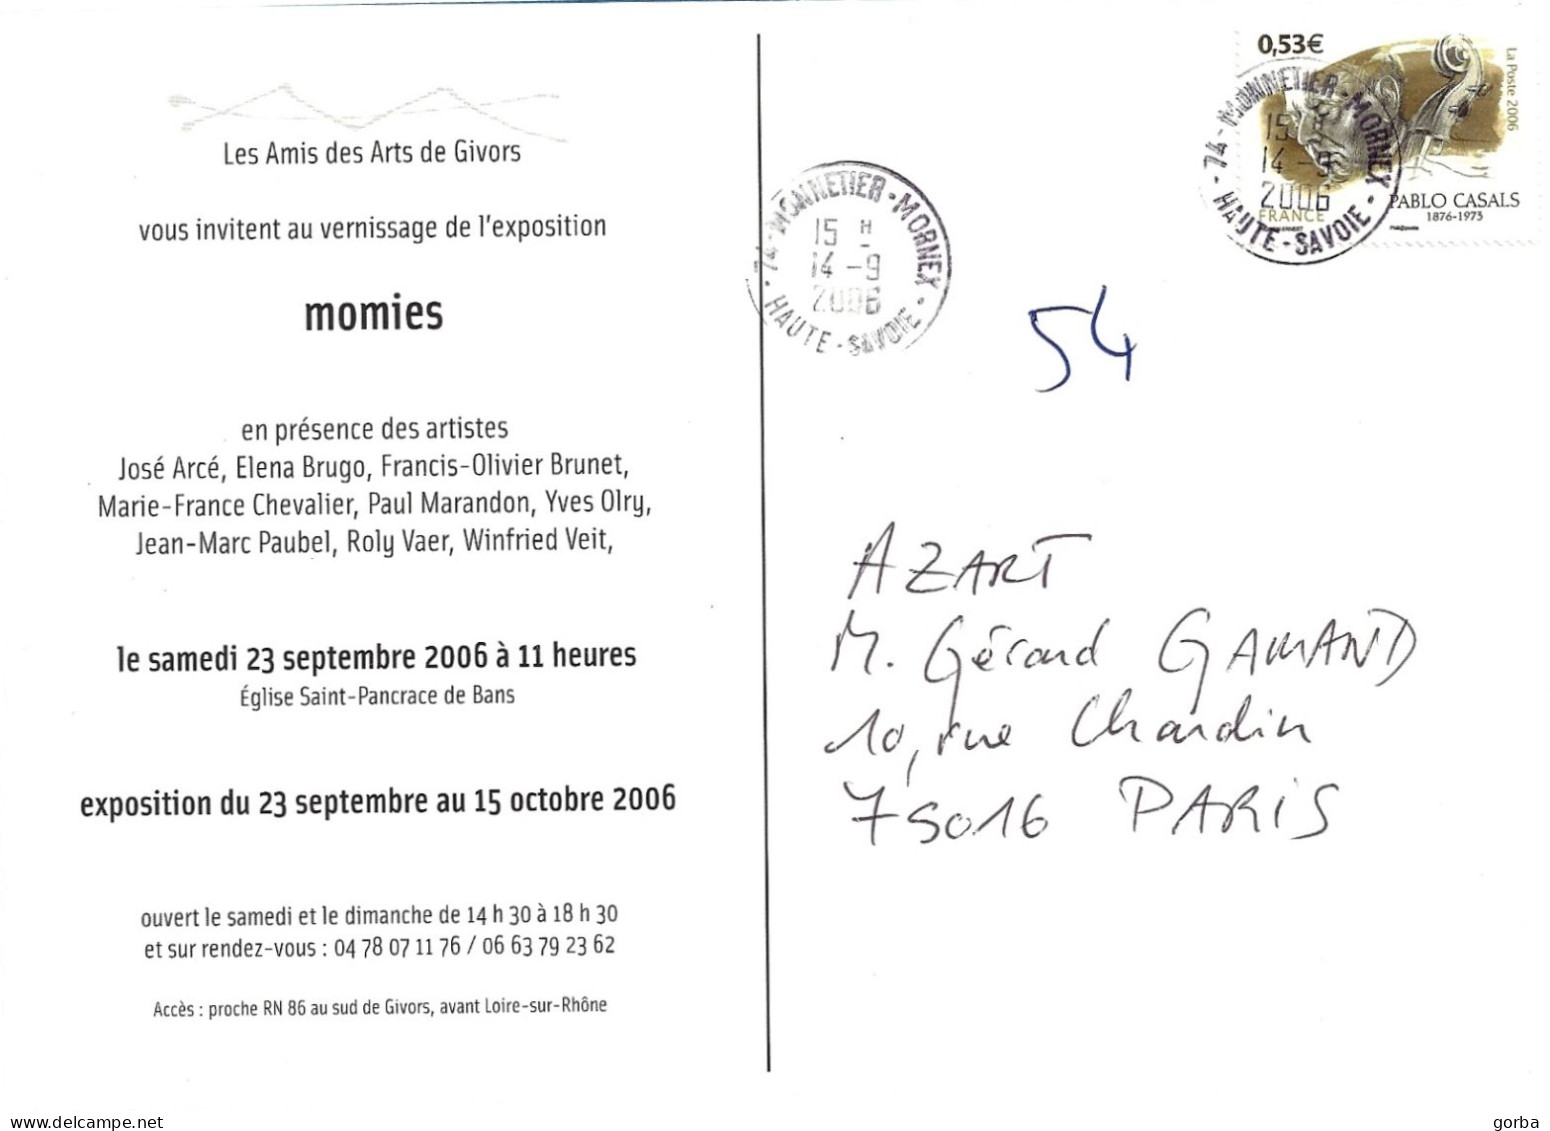 Les Amis des Arts de Givors
vous invitent au vernissage de l'exposition
momies
en présence des artistes
José Arcé, Elena Brugo, Francis-Olivier Brunet,
Marie-France Chevalier, Paul Marandon, Yves Olry,
Jean-Marc Paubel, Roly Vaer, Winfried Veit,
le samedi 23 septembre 2006 à 11 heures
Église Saint-Pancrace de Bans
exposition du 23 septembre au 15 octobre 2006
ouvert le samedi et le dimanche de 14 h 30 à 18 h 30
et sur rendez-vous : 04 78 07 11 76 / 06 63 79 23 62
Accès : proche RN 86 au sud de Givors, avant Loire-sur-Rhône
74 - MONNETIER - MORNEX -
15 H
14 - 9
2006
HAUTE - SAVOIE
0,53€
La Poste 2006
PABLO CASALS
1876-1973
FRANCE
74 - MONNETIER - MORNEX
15 H
14 - 9
2006
HAUTE - SAVOIE -
54
AZART
M. Gérard GAMAND
10, rue Chardin
75016 PARIS
delcampe.net
gorba